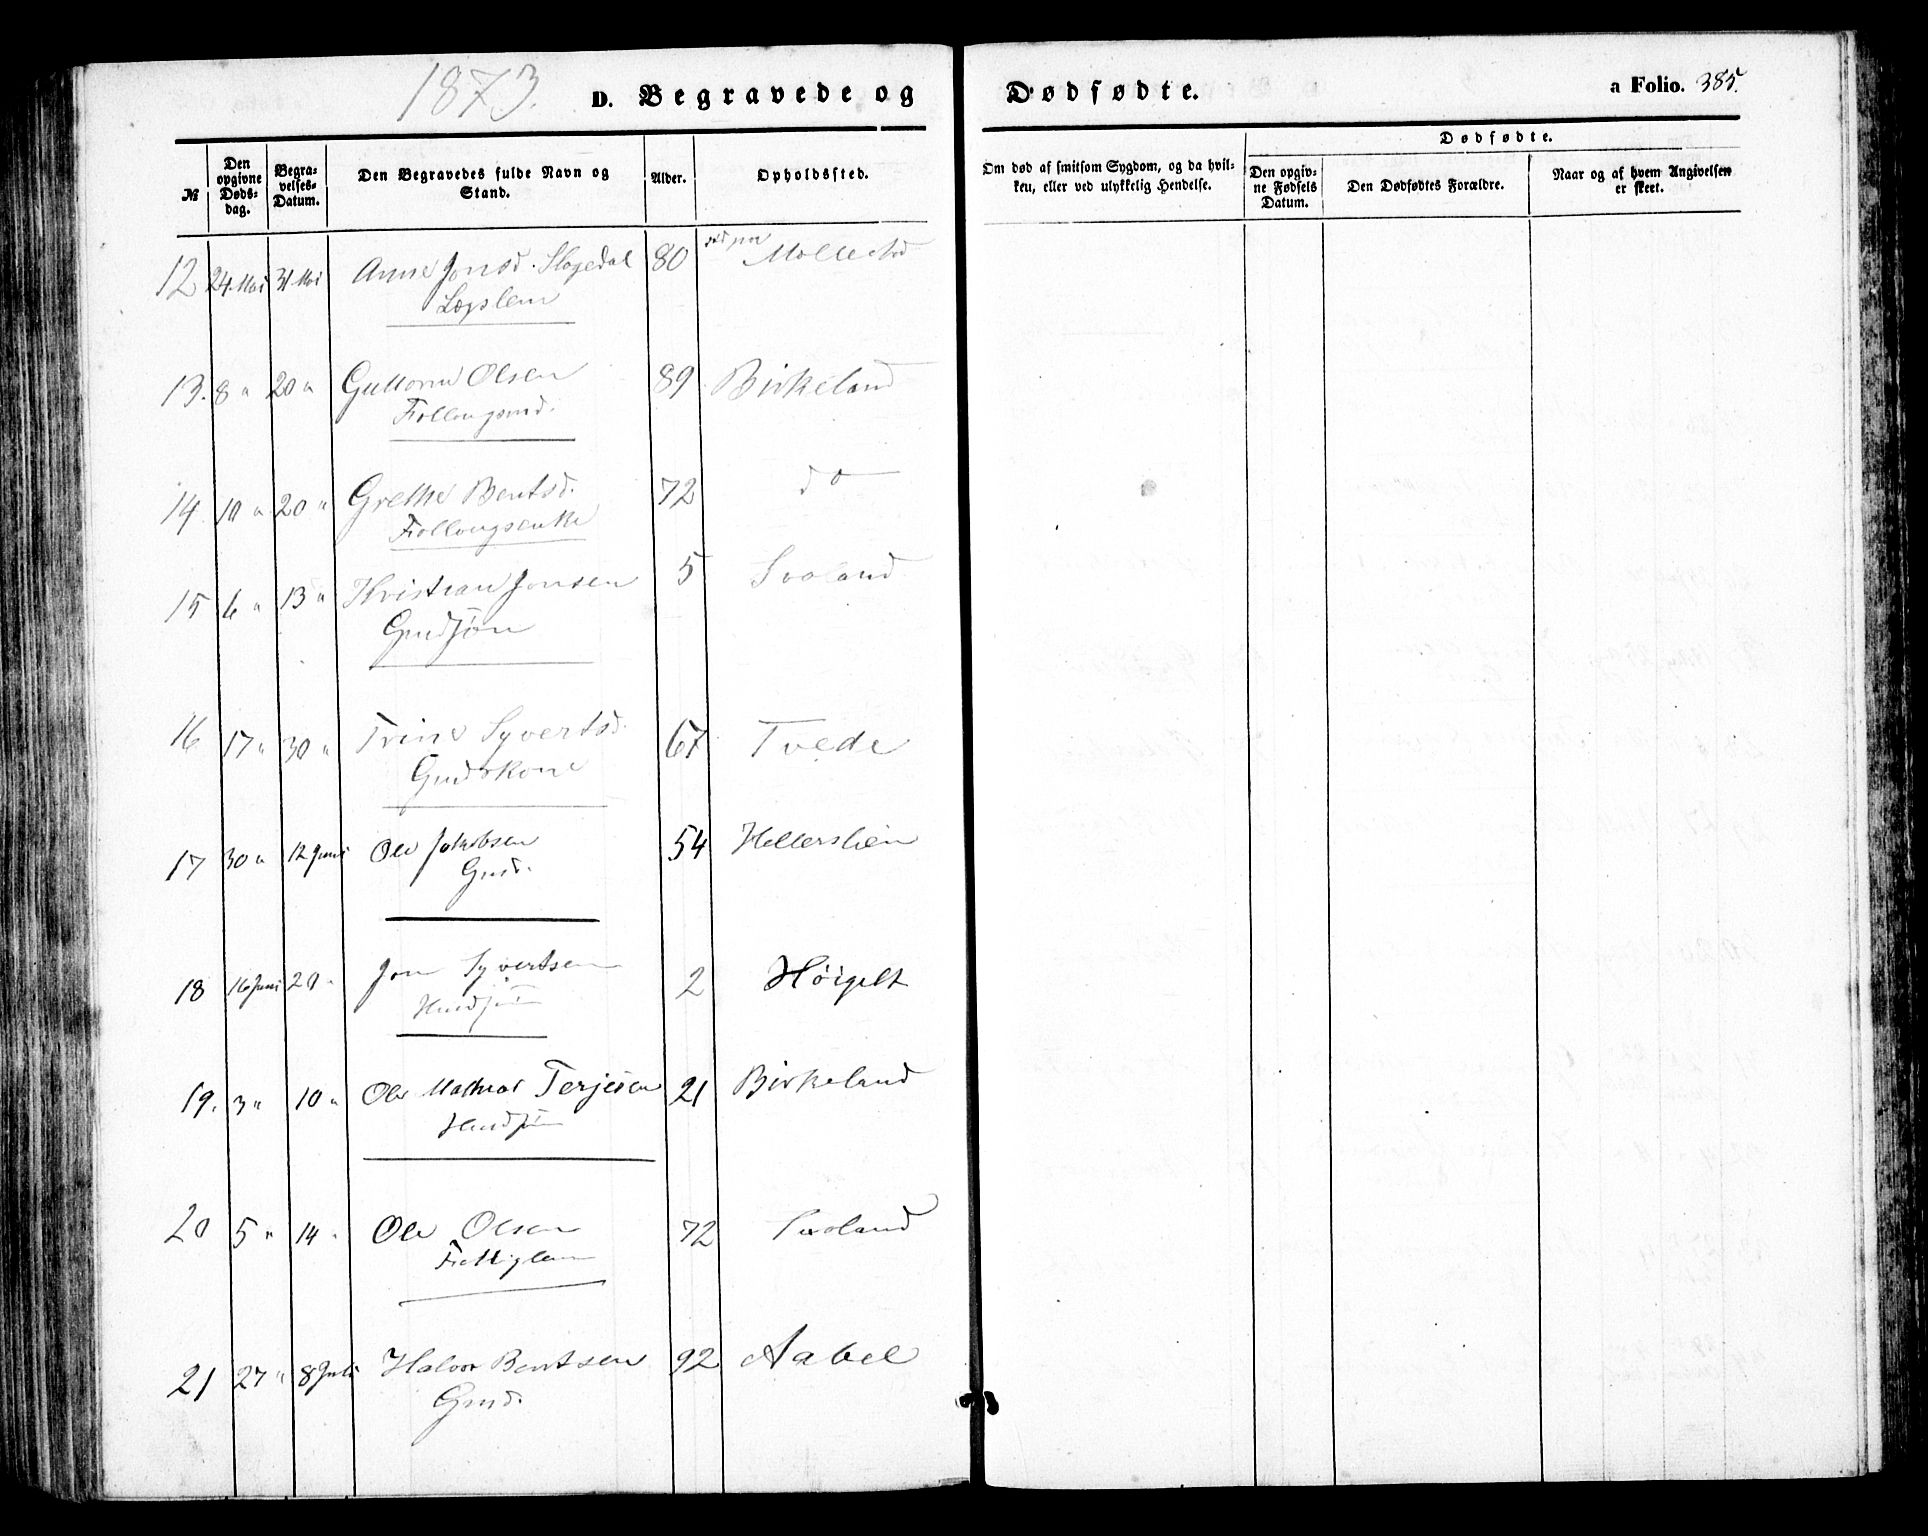 1873. D. Begravede og Dødfødte. a Folio. 385.
№
Den opgivne Døds-dag.
Begra-velses-Datum.
Den Begravedes fulde Navn og Stand.
Alder.
Opholdssted.
Om død af smitsom Sygdom, og da hvil-ken, eller ved ulykkelig Hendelse.
Dødfødte.
Den opgiv-ne Fødsels Datum.
Den Dødfødtes Forældre.
Naar og af hvem Angivelsen er skeet.
12 24 Mai 31 Mai Anne Jonsd. Slogedal 80
Lægslem
13. 8 " 20 " Guttorm Olsen 89 Birkeland
Follougsmd.
14 10 " 20 " Grethe Bentsd. 72 do
Follougsenke
15 6 " 13 " Kristian Jonsen 5 Svaland
Gmdsøn
16 17 " 30 " Trine Syvertsd. 67 Tvede
Gmdskone
17 30 " 12 Juni Ole Jakobsen 54 Hellerslien
Gmd.
18 16 Juni 20 " Jon Syvertsen 2 Høigelt
Husdsøn
19. 3 " 10 " Ole Mathias Terjesen 21 Birkeland
Husdsøn
20 5 " 14 " Ole Olsen 72 Svaland
Fattiglem
21 27 " 8 Juli Halvor Bentsen 92 Aabel
Gmd.